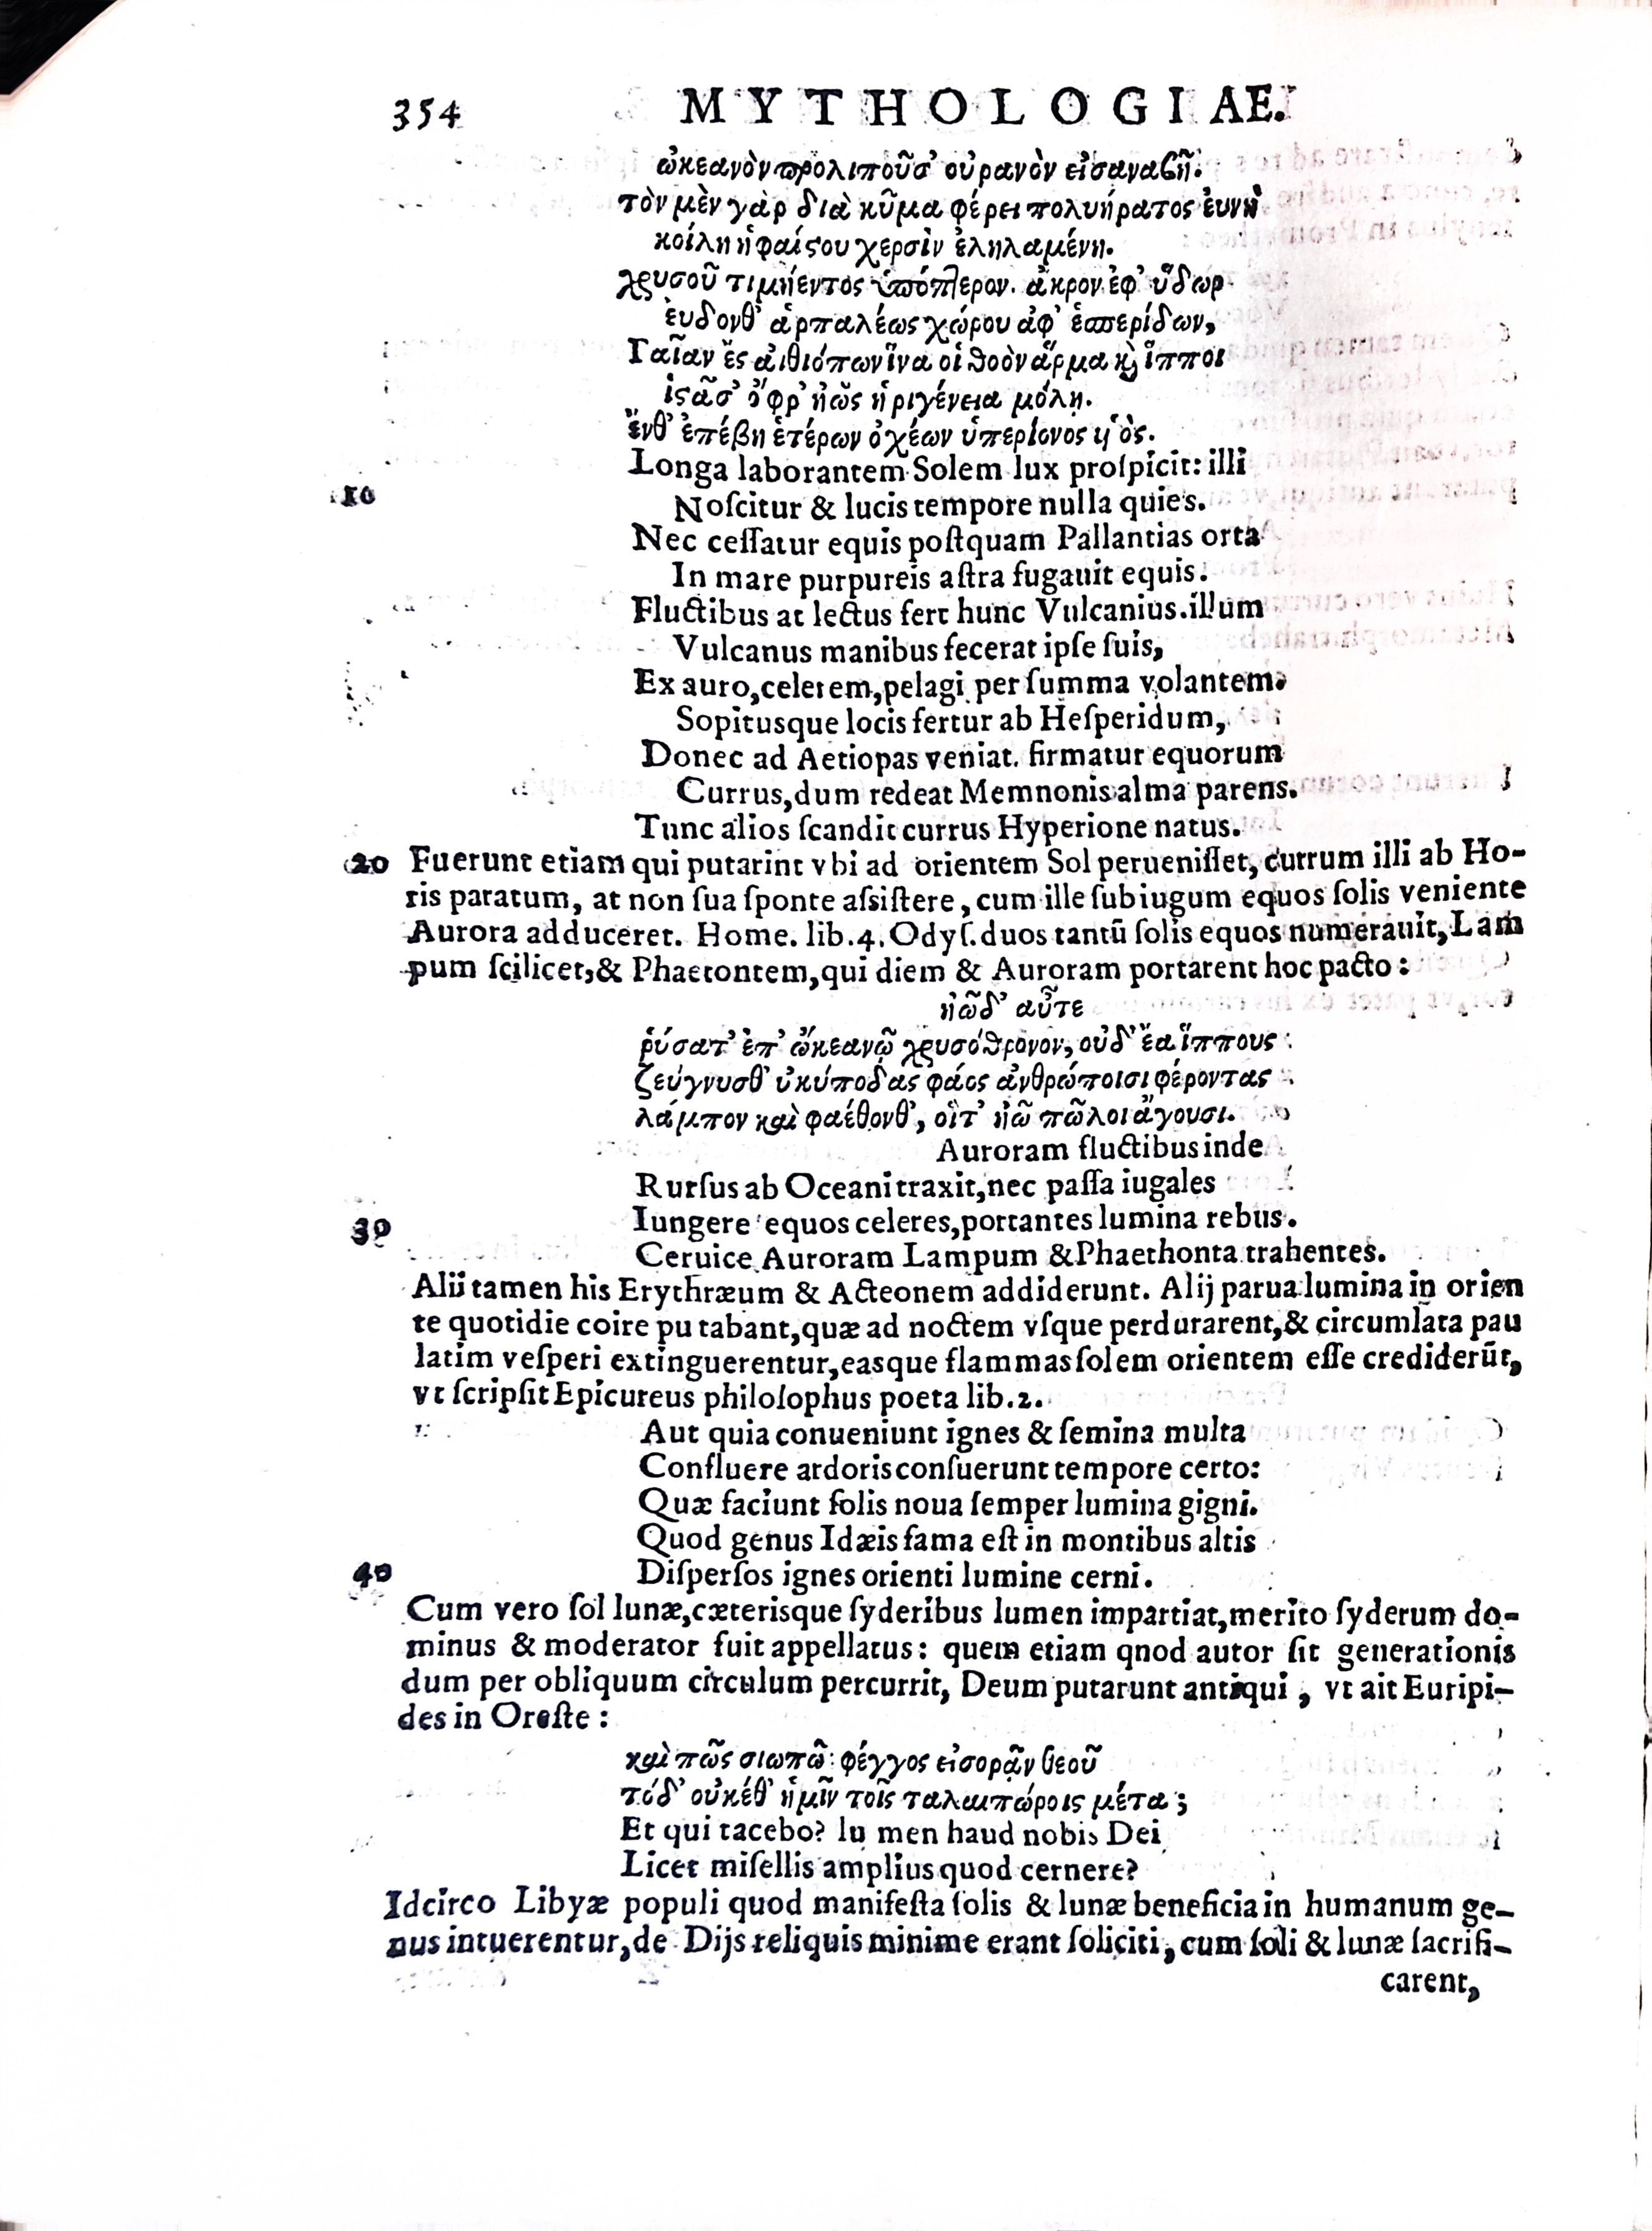 354 MYTHOLOGIAE.
ὠκεανὸν προλιποῦσ' οὐρανὸν εἰσαναβῆ.
τὸν μὲν γὰρ διὰ κῦμα φέρει πολυήρατος ἐυνὴ
κοίλη ἡφαίςου χερσὶν ἐληλαμένη.
χρυσοῦ τιμήεντος ὑπόπτερον. ἄκρον ἐφ' ὕδωρ
ἑυδονθ' ἁρπαλέως χώρου ἀφ' ἑσπερίδων,
Γαῖαν ἔς ἀιθιόπων ἵνα οἱ θοὸν ἅρμα κὶ ἵπποι
ἑςᾶσ' ὄφρ' ἠὼς ἠριγένεια μόλῃ.
ἔνθ' ἐπέβη ἑτέρων ὀχέων ὑπερίονος ἡὸς.
Longa laborantem Solem lux proſpicit: illi
10 Noſcitur & lucis tempore nulla quies.
Nec ceſſatur equis poſtquam Pallantias orta
In mare purpureis aſtra fugauit equis.
Fluctibus at lectus fert hunc Vulcanius. illum
Vulcanus manibus fecerat ipſe ſuis,
Ex auro, celerem, pelagi per ſumma volantem.
Sopitusque locis fertur ab Heſperidum,
Donec ad Aetiopas veniat. firmatur equorum
Currus, dum redeat Memnonis alma parens.
Tunc alios ſcandit currus Hyperione natus.
20 Fuerunt etiam qui putarint vbi ad orientem Sol perueniſſet, currum illi ab Ho-
ris paratum, at non ſua ſponte aſsiſtere, cum ille ſub iugum equos ſolis veniente
Aurora adduceret. Home. lib. 4. Odyſ. duos tantū ſolis equos numerauit, Lam
pum ſcilicet, & Phaetontem, qui diem & Auroram portarent hoc pacto:
ἠῶδ' αὖτε
ῥύσατ' ἐπ' ὠκεανῷ χρυσόθρονον, οὐδ' ἔα ἵππους
ζεύγνυσθ' ὠκύποδας φάος ἀνθρώποισι φέροντας
λάμπον καὶ φαέθονθ', οἵτ' ἠῶ πῶλοι ἄγουσι.
Auroram fluctibus inde
Rurſus ab Oceani traxit, nec paſſa iugales
30 Iungere equos celeres, portantes lumina rebus.
Ceruice Auroram Lampum & Phaethonta trahentes.
Alii tamen his Erythræum & Acteonem addiderunt. Alij parua lumina in orien
te quotidie coire pu tabant, quæ ad noctem vſque perdurarent, & circumlata pau
latim veſperi extinguerentur, easque flammas ſolem orientem eſſe crediderūt,
vt ſcripſit Epicureus philoſophus poeta lib. 2.
Aut quia conueniunt ignes & ſemina multa
Confluere ardoris conſuerunt tempore certo:
Quæ faciunt ſolis noua ſemper lumina gigni.
Quod genus Idæis fama eſt in montibus altis
40 Diſperſos ignes orienti lumine cerni.
Cum vero ſol lunæ, cæterisque ſyderibus lumen impartiat, merito ſyderum do-
minus & moderator fuit appellatus: quem etiam qnod autor ſit generationis
dum per obliquum circulum percurrit, Deum putarunt antiqui, vt ait Euripi-
des in Oreſte:
καὶ πῶς σιωπῶ: φέγγος εἰσορᾷν θεοῦ
τόδ' οὐκέθ' ἡμῖν τοῖς ταλαιπώροις μέτα;
Et qui tacebo? lu men haud nobis Dei
Licet miſellis amplius quod cernere?
Idcirco Libyæ populi quod manifeſta ſolis & lunæ beneficia in humanum ge-
nus intuerentur, de Dijs reliquis minime erant ſoliciti, cum ſoli & lunæ ſacrifi-
carent,